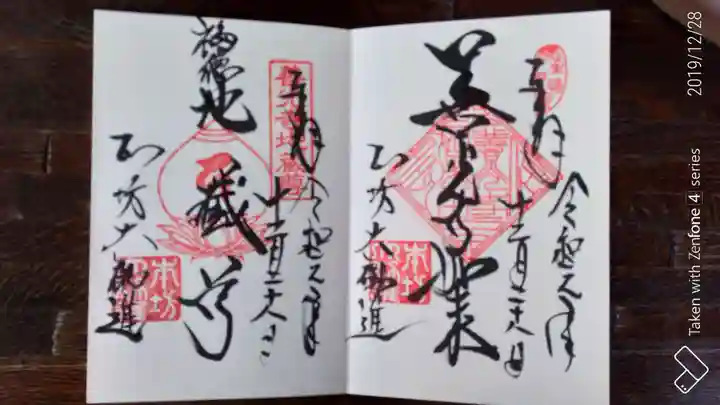 奉拝
令和元年
十二月二十八日
善光寺如来
本坊大勧進
奉拝
令和元年
十二月二十八日
福徳地蔵尊
本坊大勧進
本坊
本坊
2019/12/28
Taken with Zenfone 4 series